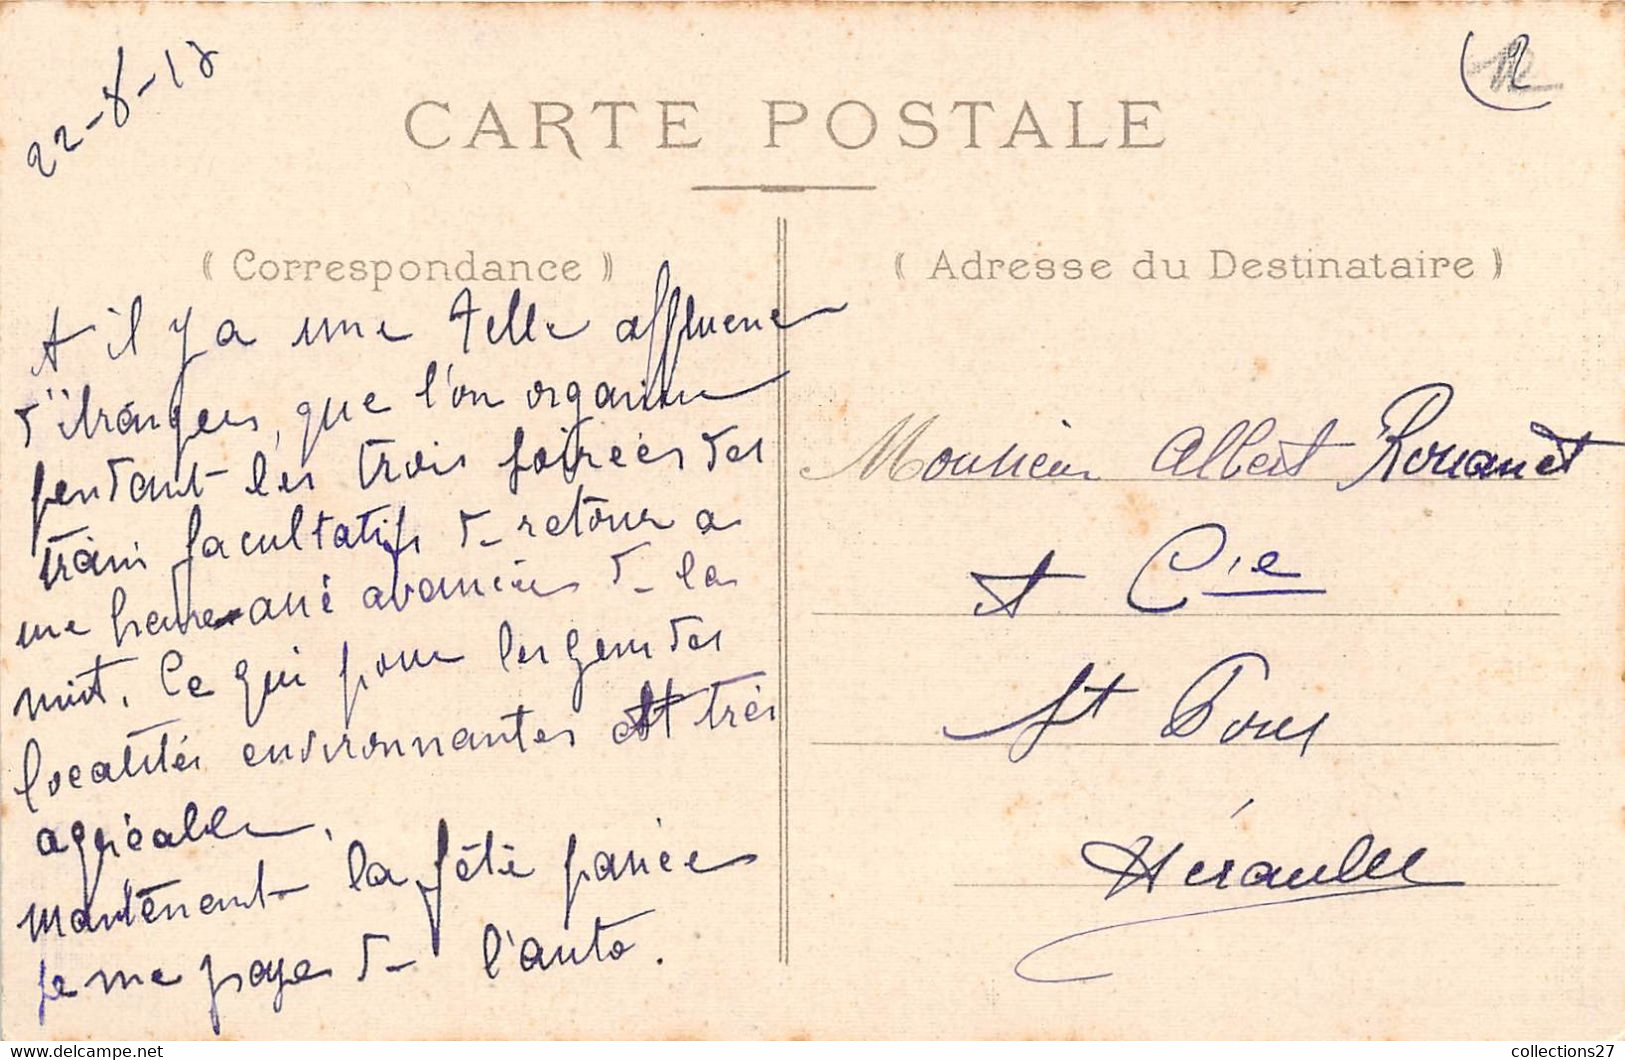 22-8-12
CARTE POSTALE
( Correspondance )
( Adresse du Destinataire )
Et il y a une telle affluence
d'étrangers, que l'on organise
pendant les trois soirées des
trains facultatifs de retour a
une heure assé avancées de la
nuit. Ce qui pour les gens des
localités environnantes est très
agréable.
Maintenant la fête passée
je me paye de l'auto.
Monsieur Albert Rouanet
et Cie
St Pons
Hérault
collections27